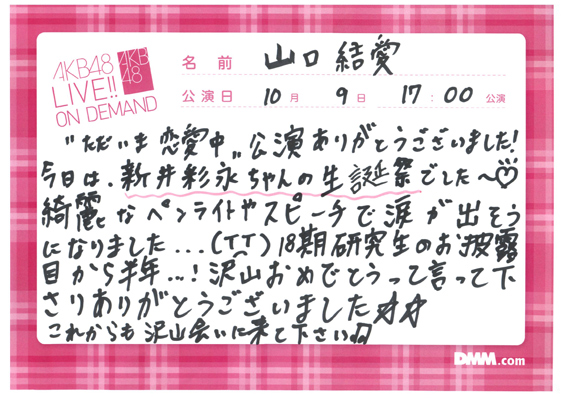 AKB48
LIVE!!
ON DEMAND
AKB
48
名前 山口 結愛
公演日 10月 9日 17:00 公演
"ただいま 恋愛中" 公演ありがとうございました!
今日は、新井彩永ちゃんの生誕祭でした〜♡
綺麗なペンライトやスピーチで涙が出そう
になりました...(TT) 18期研究生のお披露
目から半年...! 沢山おめでとうって言って下
さりありがとうございました☆☆
これからも沢山会いに来て下さい♫
DMM.com